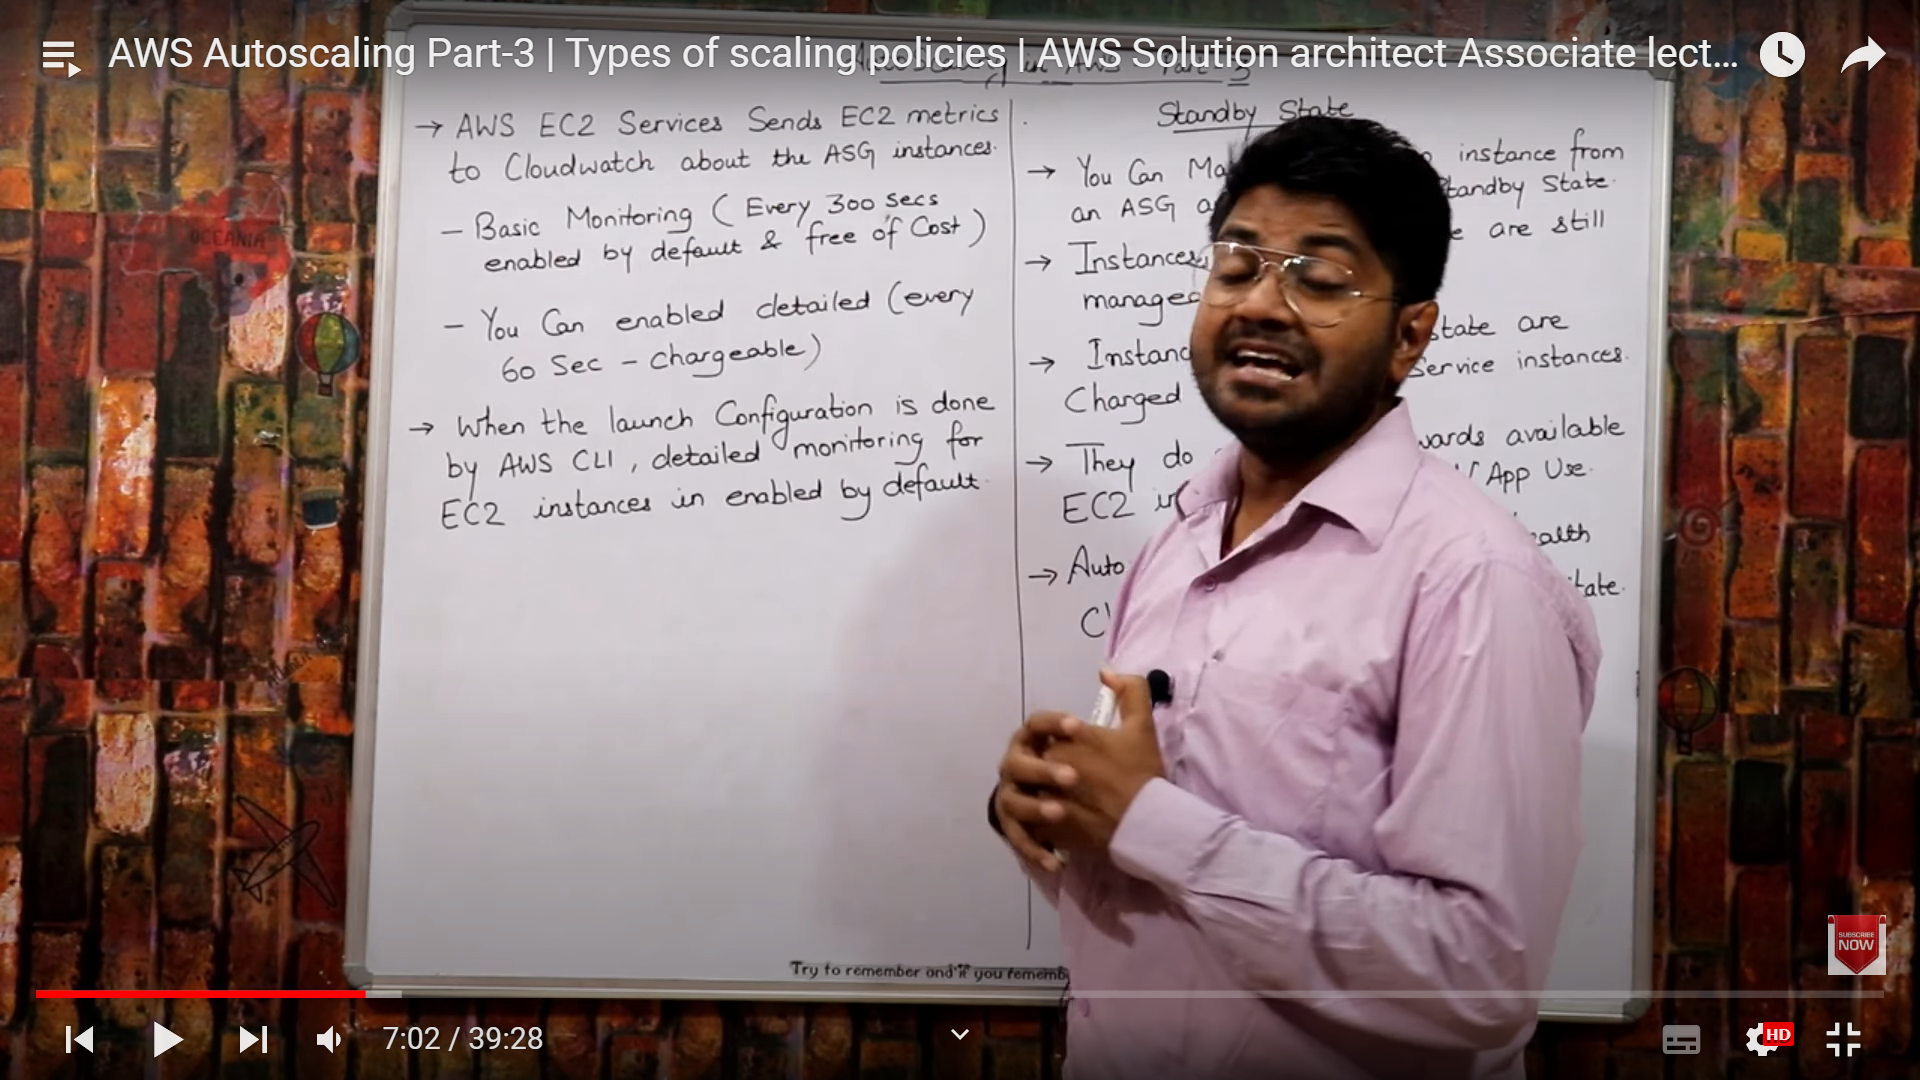 AWS Autoscaling Part-3 | Types of scaling policies | AWS Solution architect Associate lect...
in AWS Part-3
→ AWS EC2 Services Sends EC2 metrics
to Cloudwatch about the ASG instances.
- Basic Monitoring ( Every 300 secs
enabled by default & free of Cost )
- You Can enabled detailed (every
60 Sec - chargeable)
→ When the launch Configuration is done
by AWS CLI, detailed monitoring for
EC2 instances in enabled by default.
Standby State
→ You Can Ma instance from
an ASG a tandby State.
→ Instances are still
managed
→ Instanc state are
Charged Service instances.
→ They do wards available
EC2 in App Use.
→ Auto ealth
C tate.
Try to remember and if you rememb
OCEANIA
SUBSCRIBE
NOW
7:02 / 39:28
HD